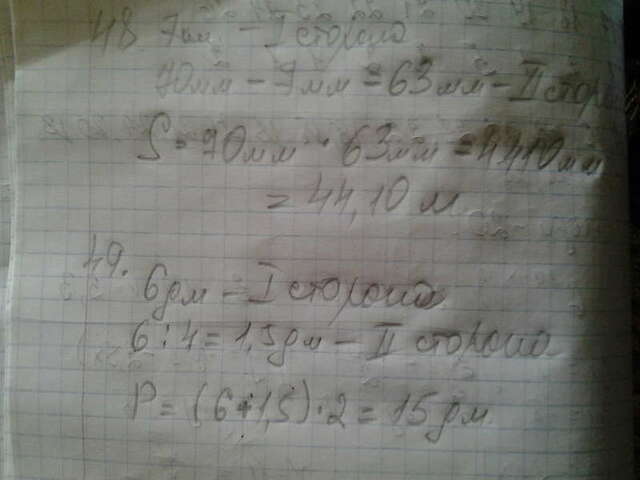 48 7см - I сторона
70мм - 7мм = 63мм - II стор
S = 70мм · 63мм = 4410мм
= 44,10 м
49.
6дм - I сторона
6 : 4 = 1,5дм - II сторона
P = (6+1,5) · 2 = 15дм